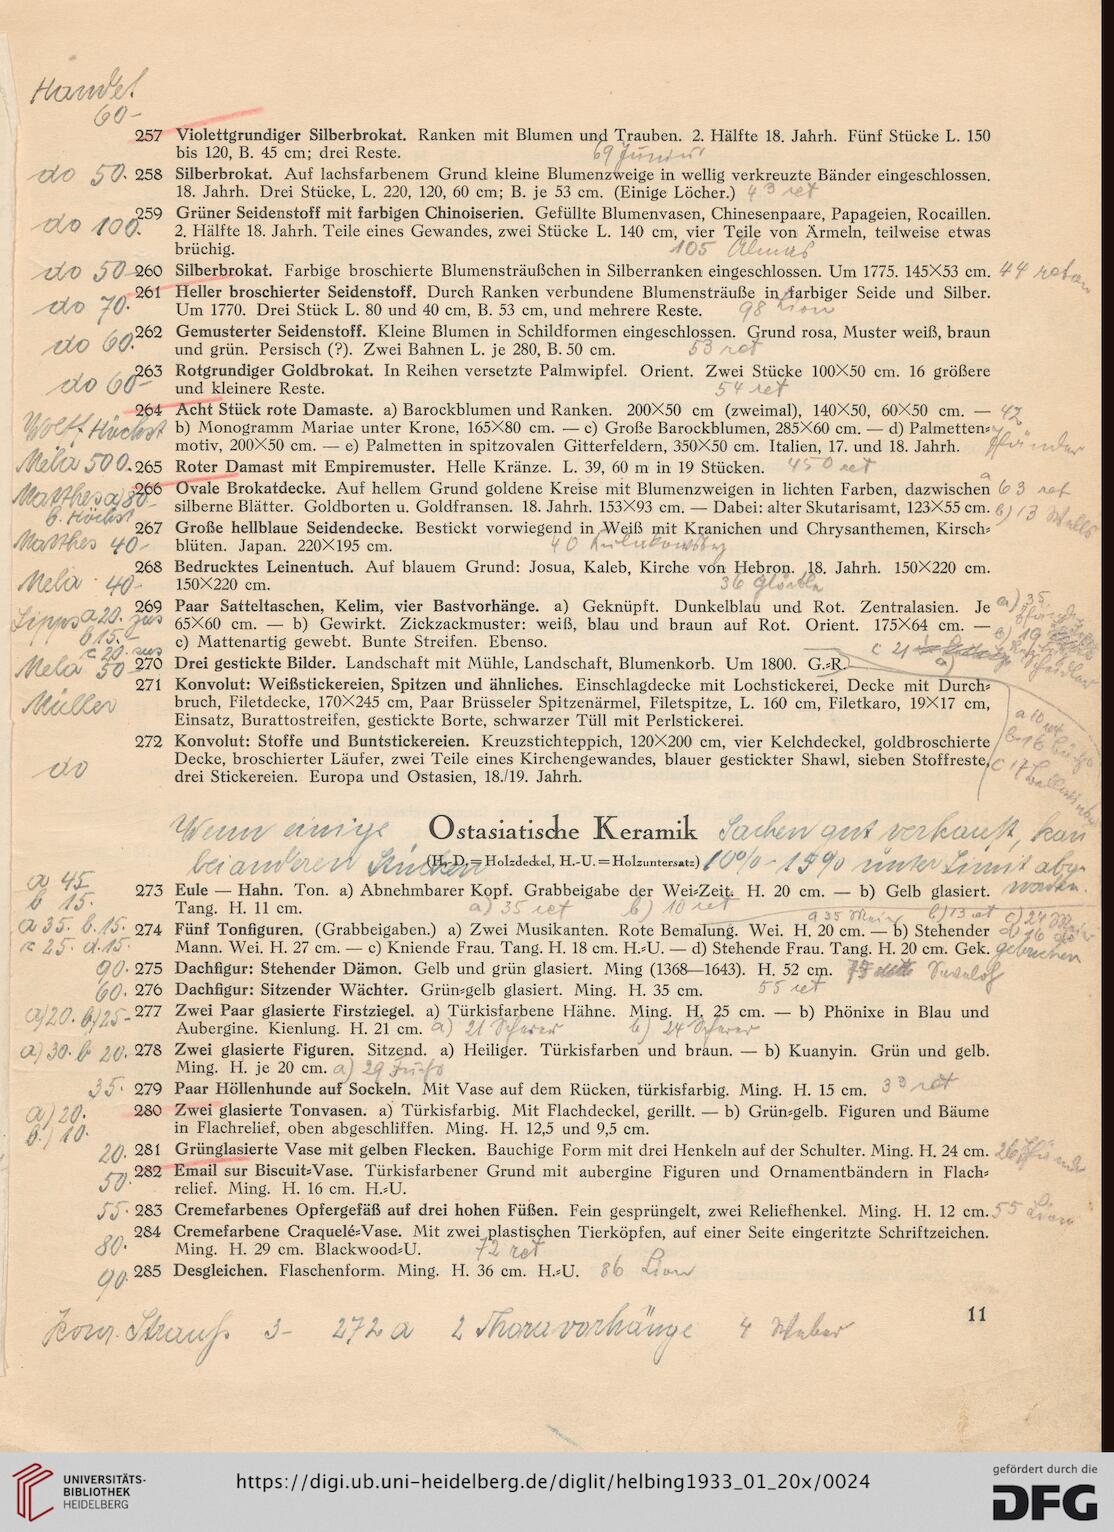 Handel
60-
257 Violettgrundiger Silberbrokat. Ranken mit Blumen und Trauben. 2. Hälfte 18. Jahrh. Fünf Stücke L. 150
bis 120, B. 45 cm; drei Reste.
69
do 50. 258 Silberbrokat. Auf lachsfarbenem Grund kleine Blumenzweige in wellig verkreuzte Bänder eingeschlossen.
18. Jahrh. Drei Stücke, L. 220, 120, 60 cm; B. je 53 cm. (Einige Löcher.) 43 ret
do 100. 259 Grüner Seidenstoff mit farbigen Chinoiserien. Gefüllte Blumenvasen, Chinesenpaare, Papageien, Rocaillen.
2. Hälfte 18. Jahrh. Teile eines Gewandes, zwei Stücke L. 140 cm, vier Teile von Ärmeln, teilweise etwas
brüchig. 105
do 50- 260 Silberbrokat. Farbige broschierte Blumensträußchen in Silberranken eingeschlossen. Um 1775. 145X53 cm. 44
do 70. 261 Heller broschierter Seidenstoff. Durch Ranken verbundene Blumensträuße in farbiger Seide und Silber.
Um 1770. Drei Stück L. 80 und 40 cm, B. 53 cm, und mehrere Reste. 98 Lion
do 60. 262 Gemusterter Seidenstoff. Kleine Blumen in Schildformen eingeschlossen. Grund rosa, Muster weiß, braun
und grün. Persisch (?). Zwei Bahnen L. je 280, B. 50 cm. 53 ret
do 60- 263 Rotgrundiger Goldbrokat. In Reihen versetzte Palmwipfel. Orient. Zwei Stücke 100X50 cm. 16 größere
und kleinere Reste. 54 ret
264 Acht Stück rote Damaste. a) Barockblumen und Ranken. 200X50 cm (zweimal), 140X50, 60X50 cm. — 42
Wolff Höchst b) Monogramm Mariae unter Krone, 165X80 cm. — c) Große Barockblumen, 285X60 cm. — d) Palmetten-
motiv, 200X50 cm. — e) Palmetten in spitzovalen Gitterfeldern, 350X50 cm. Italien, 17. und 18. Jahrh. Pfründer
Mela 500. 265 Roter Damast mit Empiremuster. Helle Kränze. L. 39, 60 m in 19 Stücken. 450 ret
Matthes a) 80- 266 Ovale Brokatdecke. Auf hellem Grund goldene Kreise mit Blumenzweigen in lichten Farben, dazwischen a 63 ret
b. Höchst silberne Blätter. Goldborten u. Goldfransen. 18. Jahrh. 153X93 cm. — Dabei: alter Skutarisamt, 123X55 cm. b) 13
Matthes 40- 267 Große hellblaue Seidendecke. Bestickt vorwiegend in Weiß mit Kranichen und Chrysanthemen, Kirsch-
blüten. Japan. 220X195 cm. 40
268 Bedrucktes Leinentuch. Auf blauem Grund: Josua, Kaleb, Kirche von Hebron. 18. Jahrh. 150X220 cm.
Mela 40- 150X220 cm. 36
Lipps a 20. 269 Paar Satteltaschen, Kelim, vier Bastvorhänge. a) Geknüpft. Dunkelblau und Rot. Zentralasien. Je a) 35
b 15. 65X60 cm. — b) Gewirkt. Zickzackmuster: weiß, blau und braun auf Rot. Orient. 175X64 cm. — b) 19
c 20. c) Mattenartig gewebt. Bunte Streifen. Ebenso. c 21
Mela 50- 270 Drei gestickte Bilder. Landschaft mit Mühle, Landschaft, Blumenkorb. Um 1800. G.-R.
271 Konvolut: Weißstickereien, Spitzen und ähnliches. Einschlagdecke mit Lochstickerei, Decke mit Durch-
Müller bruch, Filetdecke, 170X245 cm, Paar Brüsseler Spitzenärmel, Filetspitze, L. 160 cm, Filetkaro, 19X17 cm,
Einsatz, Burattostreifen, gestickte Borte, schwarzer Tüll mit Perlstickerei.
272 Konvolut: Stoffe und Buntstickereien. Kreuzstichteppich, 120X200 cm, vier Kelchdeckel, goldbroschierte
do Decke, broschierter Läufer, zwei Teile eines Kirchengewandes, blauer gestickter Shawl, sieben Stoffreste,
drei Stickereien. Europa und Ostasien, 18./19. Jahrh.
Wenn einige Ostasiatische Keramik Sachen gut verkauft, kann
bei anderen Stücken (H.-D. = Holzdeckel, H.-U. = Holzuntersatz) 10% - 15% unter Limit abge-
werden.
a 45 273 Eule — Hahn. Ton. a) Abnehmbarer Kopf. Grabbeigabe der Wei-Zeit. H. 20 cm. — b) Gelb glasiert.
b 15. Tang. H. 11 cm. a) 35 ret b) 10 ret
a 35. b. 15. 274 Fünf Tonfiguren. (Grabbeigaben.) a) Zwei Musikanten. Rote Bemalung. Wei. H. 20 cm. — b) Stehender
c 25. d. 15. Mann. Wei. H. 27 cm. — c) Kniende Frau. Tang. H. 18 cm. H.-U. — d) Stehende Frau. Tang. H. 20 cm. Gek.
90. 275 Dachfigur: Stehender Dämon. Gelb und grün glasiert. Ming (1368—1643). H. 52 cm.
60. 276 Dachfigur: Sitzender Wächter. Grün-gelb glasiert. Ming. H. 35 cm. 55 ret
a) 20. b) 25- 277 Zwei Paar glasierte Firstziegel. a) Türkisfarbene Hähne. Ming. H. 25 cm. — b) Phönixe in Blau und
Aubergine. Kienlung. H. 21 cm. a) 21 b) 24
a) 30. b 20. 278 Zwei glasierte Figuren. Sitzend. a) Heiliger. Türkisfarben und braun. — b) Kuanyin. Grün und gelb.
Ming. H. je 20 cm. a) 29 Fuchs
35. 279 Paar Höllenhunde auf Sockeln. Mit Vase auf dem Rücken, türkisfarbig. Ming. H. 15 cm. 33 ret
a) 20. 280 Zwei glasierte Tonvasen. a) Türkisfarbig. Mit Flachdeckel, gerillt. — b) Grün-gelb. Figuren und Bäume
b.) 10. in Flachrelief, oben abgeschliffen. Ming. H. 12,5 und 9,5 cm.
20. 281 Grünglasierte Vase mit gelben Flecken. Bauchige Form mit drei Henkeln auf der Schulter. Ming. H. 24 cm. 26 Pfründer
50. 282 Email sur Biscuit-Vase. Türkisfarbener Grund mit aubergine Figuren und Ornamentbändern in Flach-
relief. Ming. H. 16 cm. H.-U.
55. 283 Cremefarbenes Opfergefäß auf drei hohen Füßen. Fein gesprüngelt, zwei Reliefhenkel. Ming. H. 12 cm. 55 Lion
80. 284 Cremefarbene Craquelé-Vase. Mit zwei plastischen Tierköpfen, auf einer Seite eingeritzte Schriftzeichen.
Ming. H. 29 cm. Blackwood-U. 72 ret
90. 285 Desgleichen. Flaschenform. Ming. H. 36 cm. H.-U. 86 Lion
11
Strauss 3- 272 a 2 Thoravorhänge 4 Weber
UNIVERSITÄTS-
BIBLIOTHEK
HEIDELBERG
https://digi.ub.uni-heidelberg.de/diglit/helbing1933_01_20x/0024
gefördert durch die
DFG